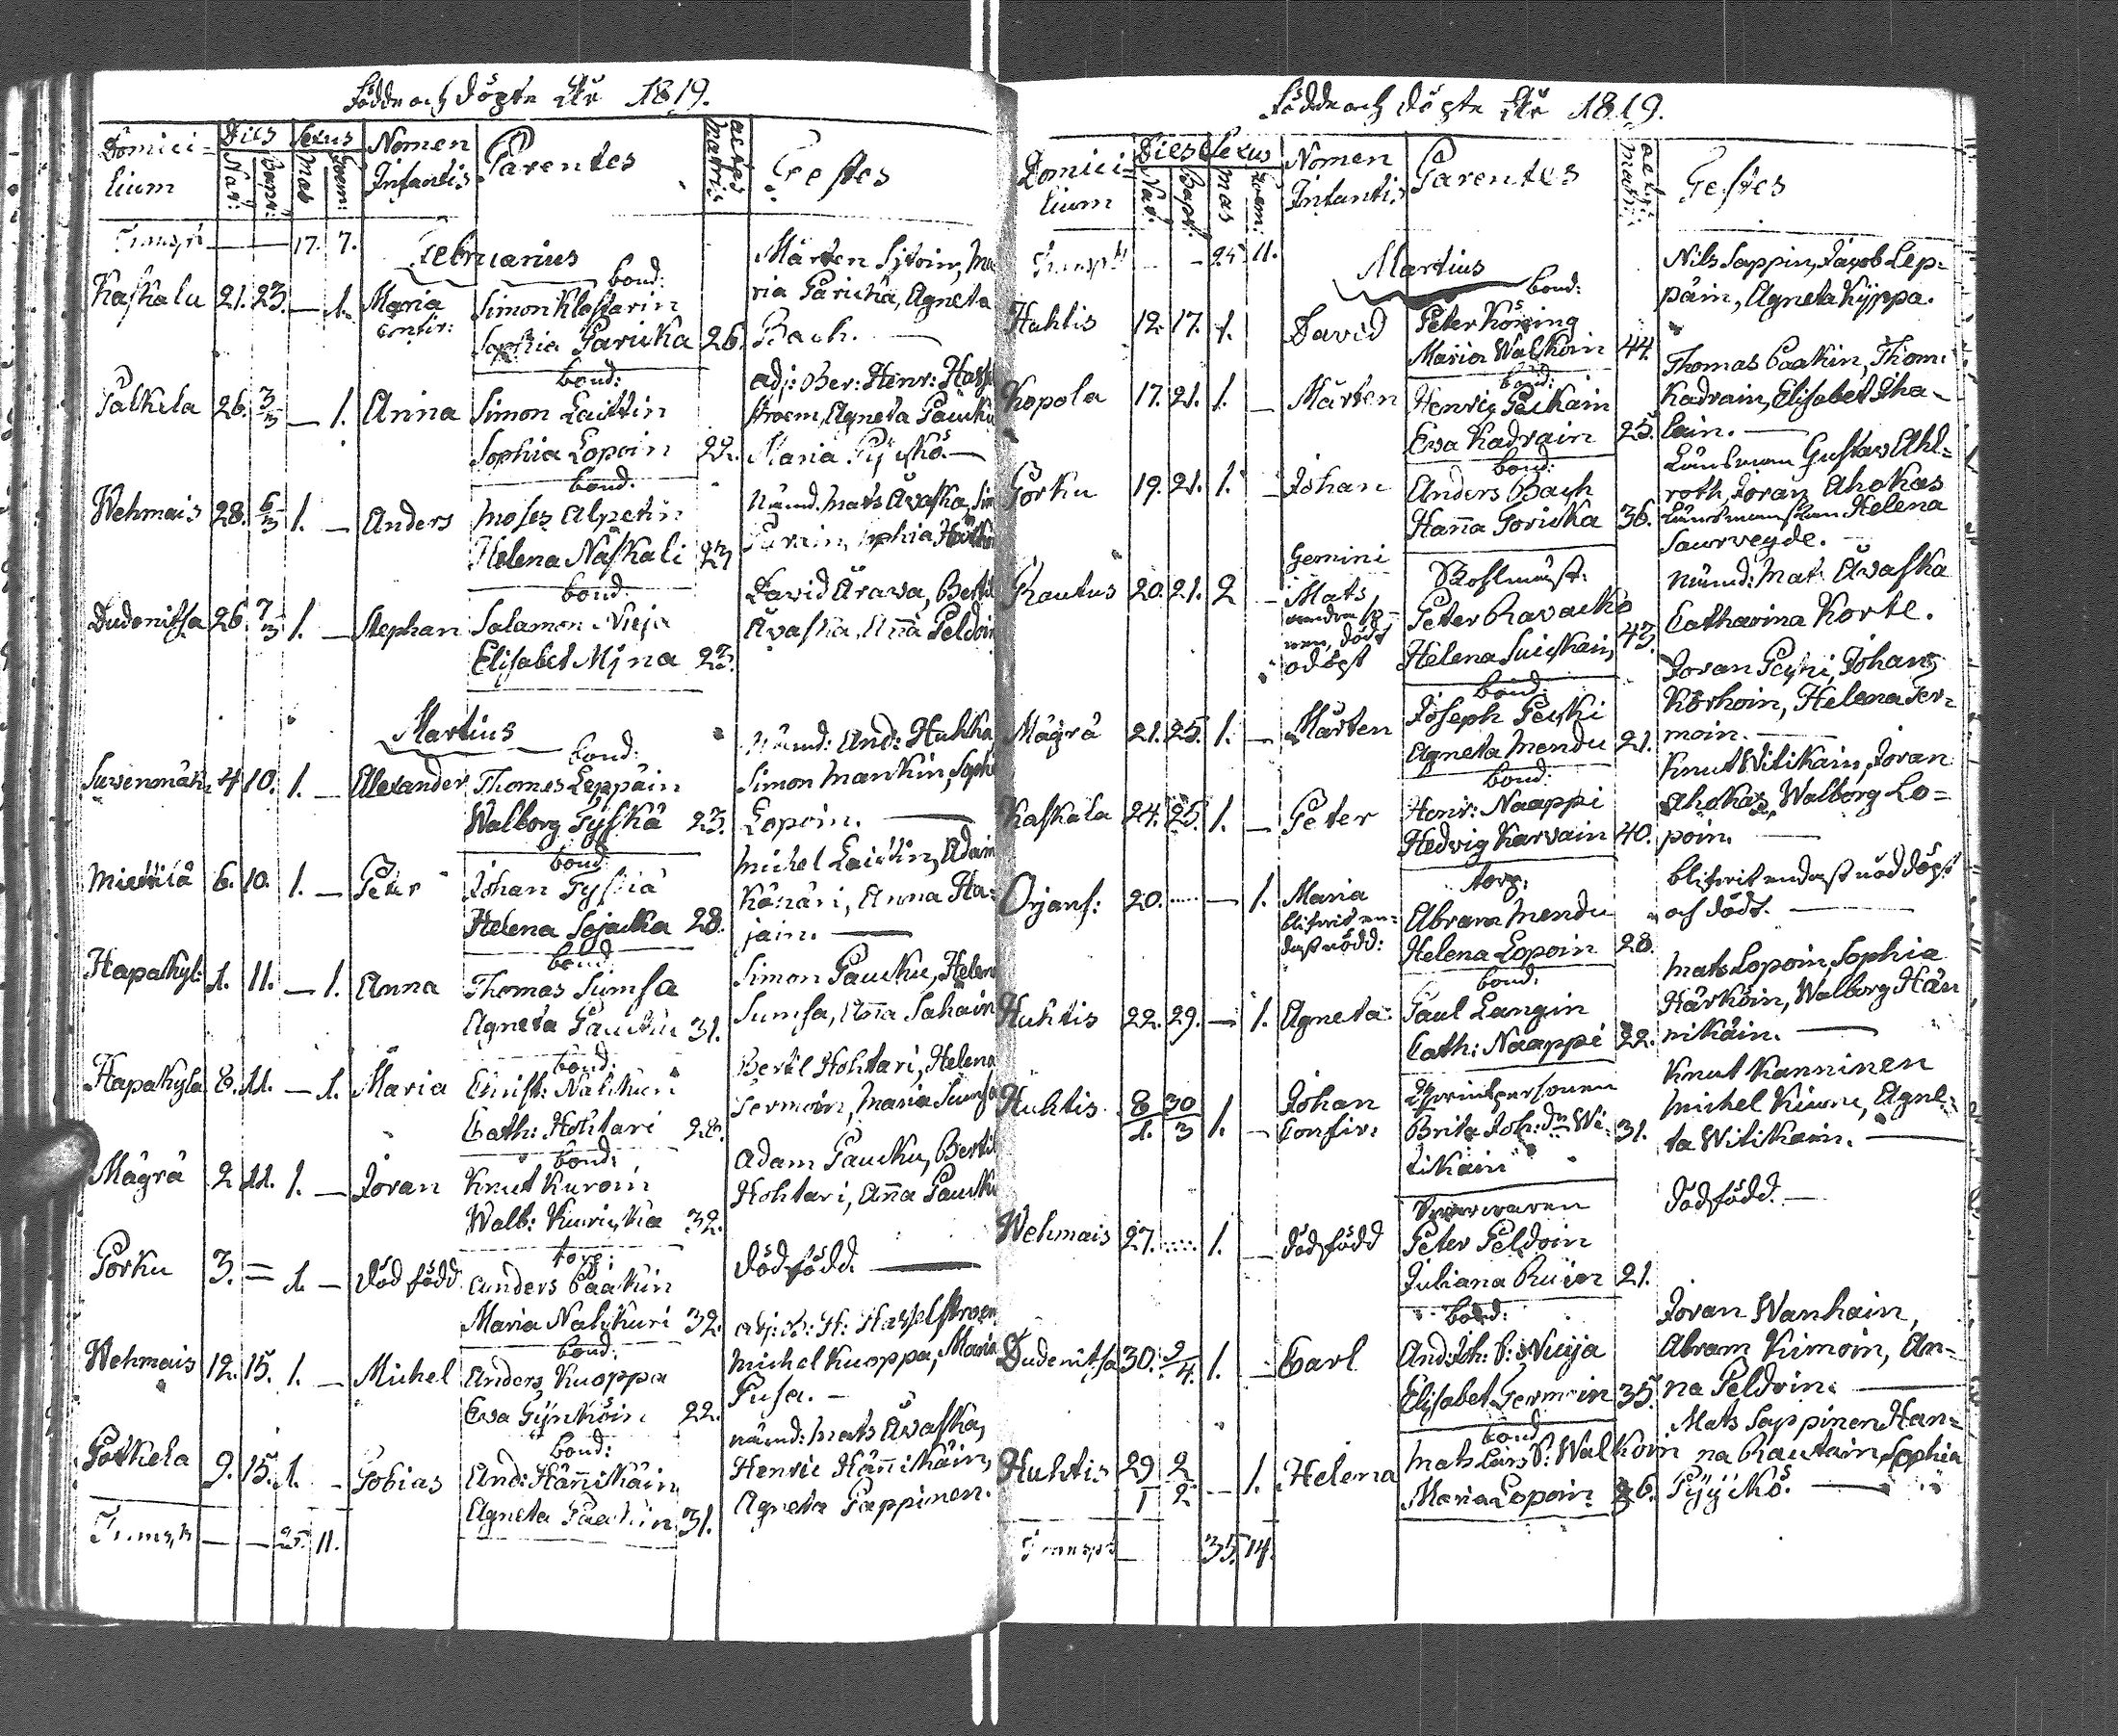 Födde och döpte År 1819.
Domici= Dies Sexus Nomen Parentes aetas Testes
lium Nat: Bapt: Mas Foem: Infantis matris
Transpt — — 17. 7.
Februarius
Kaskala 21. 23. — 1. Maria
bond:
Simon Klossarin
Sophia Pariska 26.
Mårten
ria Pariska, Agneta
Bach. —
Palkela 26. 3/3 — 1. Anna
bond:
Simon Laittin
Sophia Lopoin 22.
adj: Ber: Henr:
stroem, Agneta
Maria —
Wehmais 28. 6/3 1. — Anders
bond.
Moses Alpetin
Helena Naskali 23
Nämd. Mats Äwaska,
Dudenitsa 26 7/3 1. — Stephan
bond
Salamon Nuja
Elisabet Mjna 23.
David Ärawa,
Äwaska, Anna Peldoin
Martius
Suvenmäk: 4 10. 1. — Alexander
bond:
Thomas Leppäin
Walborg Tyskä 23.
Nämd: And: Hukka
Simon Mankin,
Lopoin. —
6. 10. 1. — Peter
bond
Johan Tyskiä
Helena 28.
Michel Laittin, Adam
Känäri, Anna Ha=
jain. —
Hapakyl: 1. 11. — 1. Anna
bond:
Thomas Sumsa
Agneta 31.
Simon Paucku, Helena
Sumsa, Anna Sahain
Hapakyla 8. 11. — 1. Maria
bond:
Christ: Nalikuri
Cath: Hohtari 28.
Bertil Hohtari, Helena
Termoin, Maria Sumsa
Mägrä 2 11. 1. — Joran
bond:
Knut Kuroin
Walb: 32.
Adam Paucku, Bertil
Hohtari, Anna Paucku
Porku 3. = 1. — död född
torp:
Anders Paakin
Maria Nalikuri 32.
död född. —
Wehmais 12. 15. 1. — Michel
bond:
Anders Kuoppa
Ewa Pynnöin 22.
H: Hasselstroem
Michel Kuoppa, Maria
Pusa. —
Palkela 9. 15. 1. — Tobias
bond:
And: Hännikäin
Agneta 31.
nämd: Mats Äwaska,
Henric Hännikäin,
Agneta Pappinen.
Transpt — — 25. 11.
Födde och döpte År 1819.
Domici= Dies Sexus Nomen Parentes aetas Testes
lium Nat: Bapt: mas foem: Infantis matris
Transpt — — 25 11.
Martius
Huhtis 12. 17. 1. David
bond:
Peter Köning
Maria Walkoin 44.
Nils Sappin, Jacob Lep=
päin, Agneta Kyppa.
Kopola 17. 21. 1. — Mårten
bond:
Henric Päckäin
Ewa Kadrain 25.
Thomas Paakin, Thom:
Kadrain, Elisabet Iha=
lain. —
Porku 19. 21. 1. — Johan
bond:
Anders Bach
Hanna Poriska 36.
Länsman Gustav Ahl=
roth, Joran Ahokas
Länsmanskan Helena
Rautus 20. 21. 2 —
Gemini
Mats,
andra
död
odöpt
Peter Ravatko
Helena Suickain, 43.
nämd: Mat: Äwaska
Catharina Korte.
Mägrä 21. 25. 1. — Mårten
bond:
Joseph Pecki
Agneta Mendu 21.
Joran Pecki, Johan
Körhoin, Helena Ter=
moin. —
Kaskala 24. 25. 1. — Peter
bond:
Henr: Naappi
Hedvig Karvain 40.
Knut Witikain, Joran
Ahokas, Walborg Lo=
poin. —
Orjans: 20. — 1. Maria
blifvit en=
dast nödd:
torp:
Abram Mendu
Helena Lopoin 28.
blifvit endast nöddöpt
och död. —
Huhtis 22. 29. — 1. Agneta
bond:
Paul Langin
Cath: Naappi 22.
Mats Lopoin, Sophia
Härköin, Walborg Hän
nikäin. —
Huhtis 8/1. 30/3 1. — Johan
Confir:
Brita Joh: dr Wi= 31.
tikain
Knut Kanninen
Michel Agne=
ta Witikain. —
Wehmais 27. 1. — dödfödd
Peter Peldoin
Juliana 21.
dödfödd. —
Dudenitsa 30. 2/4. 1. — Carl
bond:
And: Joh: S: Nuija
Elisabet Termoin 35.
Joran Wanhain,
Abram Kimoin, An=
na Peldoin. —
Huhtis 29/1 2/2 — 1. Helena
bond
Mats Lars S: Walkoin
Maria Lopoin 26.
Mats Sappinen Han=
na Rautain, Sophia
Pyyckö. —
Transpt — 35. 14.